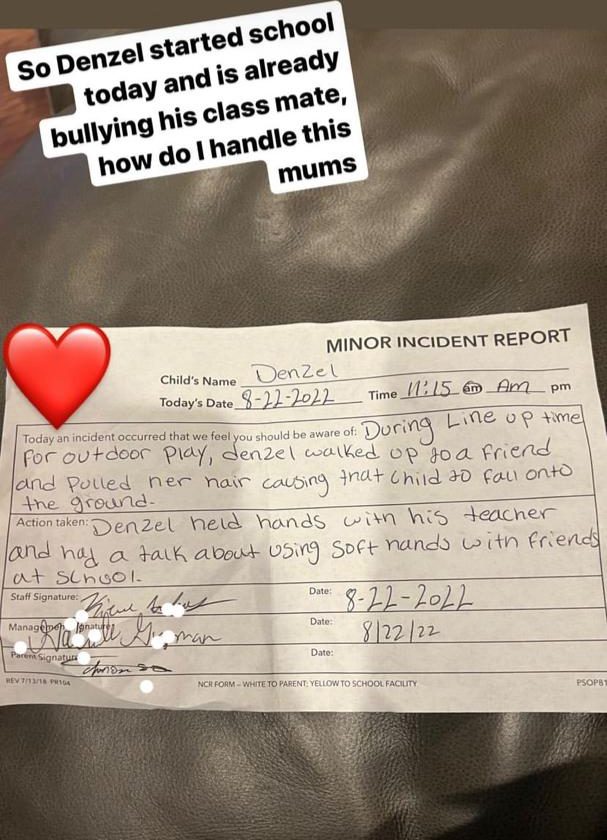 So Denzel started school
today and is already
bullying his class mate,
how do I handle this
mums
MINOR INCIDENT REPORT
Child's Name Denzel
Today's Date 8-22-2022 Time 11:15 am Am pm
Today an incident occurred that we feel you should be aware of: During Line up time
for outdoor play, denzel walked up to a friend
and pulled her hair causing that child to fall onto
the ground.
Action taken: Denzel held hands with his teacher
and had a talk about using soft hands with friends
at school.
Staff Signature: Date: 8-22-2022
Management Signature: Date: 8/22/22
Parent Signature Date:
REV 7/13/18 PR104 NCR FORM – WHITE TO PARENT; YELLOW TO SCHOOL FACILITY